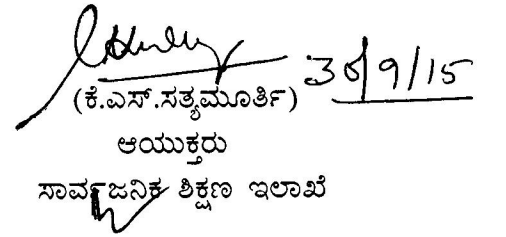 30/9/15
(ಕೆ.ಎಸ್.ಸತ್ಯಮೂರ್ತಿ)
ಆಯುಕ್ತರು
ಸಾರ್ವಜನಿಕ ಶಿಕ್ಷಣ ಇಲಾಖೆ